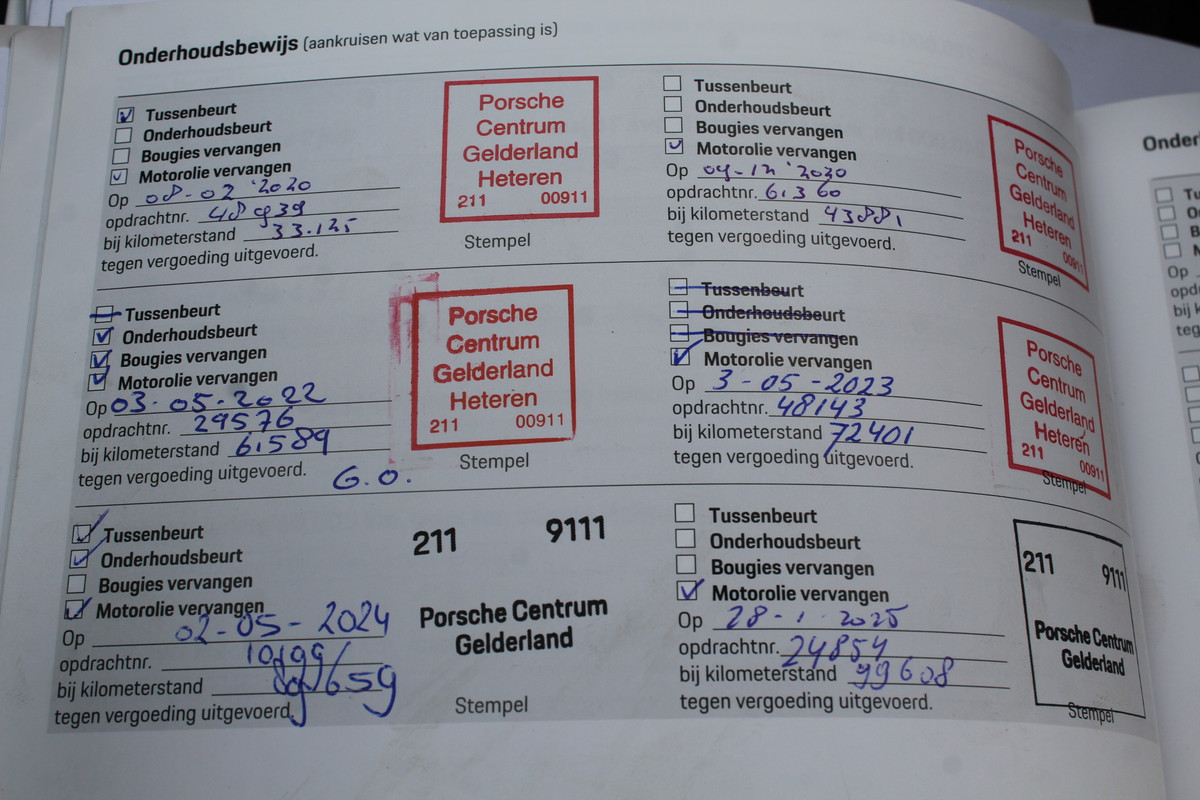 Onderhoudsbewijs (aankruisen wat van toepassing is)
Tussenbeurt
Onderhoudsbeurt
Bougies vervangen
Motorolie vervangen
Op 08-02 '2020
opdrachtnr. 48939
bij kilometerstand 33.125
tegen vergoeding uitgevoerd.
Porsche
Centrum
Gelderland
Heteren
211 00911
Stempel
Tussenbeurt
Onderhoudsbeurt
Bougies vervangen
Motorolie vervangen
Op 09-12 '2020
opdrachtnr. 6.360
bij kilometerstand 43881
tegen vergoeding uitgevoerd.
Porsche
Centrum
Gelderland
Heteren
211 00911
Stempel
Tussenbeurt
Onderhoudsbeurt
Bougies vervangen
Motorolie vervangen
Op 03-05-2022
opdrachtnr. 29576
bij kilometerstand 61589
tegen vergoeding uitgevoerd.
G.O.
Porsche
Centrum
Gelderland
Heteren
211 00911
Stempel
Tussenbeurt
Onderhoudsbeurt
Bougies vervangen
Motorolie vervangen
Op 3-05-2023
opdrachtnr. 48143
bij kilometerstand 72401
tegen vergoeding uitgevoerd.
Porsche
Centrum
Gelderland
Heteren
211 00911
Stempel
Tussenbeurt
Onderhoudsbeurt
Bougies vervangen
Motorolie vervangen
Op 02-05-2024
opdrachtnr.
bij kilometerstand
tegen vergoeding uitgevoerd.
211 9111
Porsche Centrum
Gelderland
Stempel
Tussenbeurt
Onderhoudsbeurt
Bougies vervangen
Motorolie vervangen
Op 28-1-2025
opdrachtnr. 24854
bij kilometerstand 99608
tegen vergoeding uitgevoerd.
211 9111
Porsche Centrum
Gelderland
Stempel